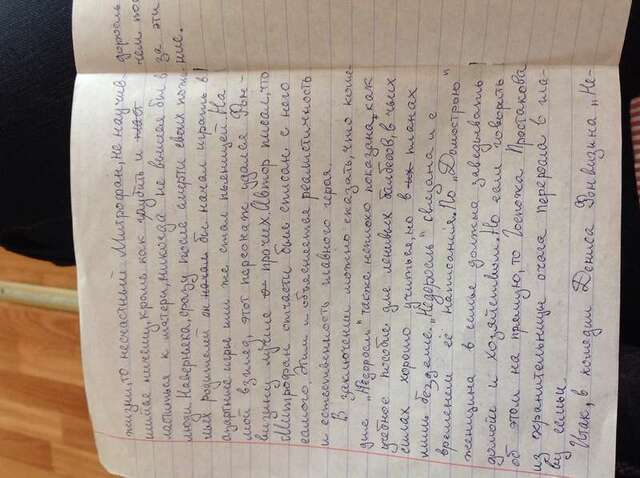 жизни, то несчастный Митрофан, не научив-
шийся ничему, кроме как грубить и
ластиться к матери, никогда не вышел бы в
люди. Наверняка, сразу после смерти своих пожи-
лых родителей он начал бы начал играть в
азартные игры или же стал пьяницей. На
мой взгляд, этот персонаж удался Фон-
визину лучше прочих. Автор писал, что
Митрофан отчасти был списан с него
самого. Этим и объясняется реалистичность
и естественность главного героя.
В заключении можно сказать, что коме-
дия „Недоросль" также неплохо показана, как
учебное пособие для ленивых балбесов, в чьих
силах хорошо учиться, но в их планах
лишь безделие. „Недоросль" связана и с
временем её написания. По „Домострою"
женщина в семье должна заведывать
домом и хозяйством. Но если говорить
об этом на прямую, то Госпожа Простакова
из хранительницы очага переросла в гла-
ву семьи.
Итак, в комедии Дениса Фонвизина „Не-
доросль
чем пос
за эти
ние.